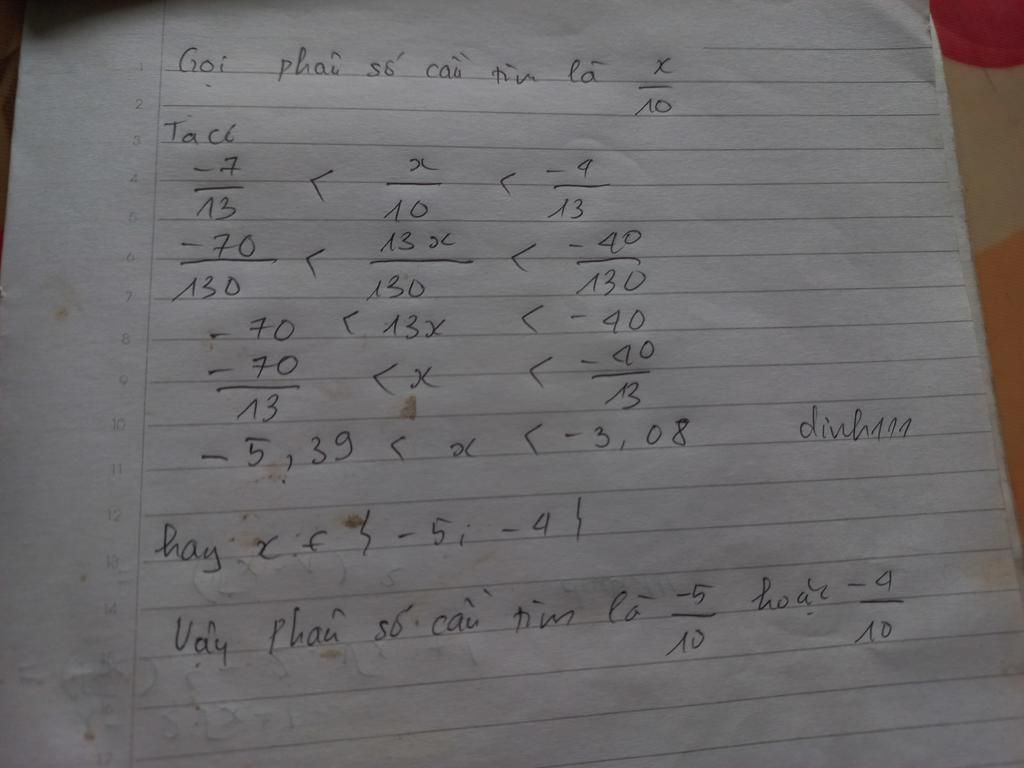 Gọi phân số cần tìm là x/10
Ta có
-7/13 < x/10 < -4/13
-70/130 < 13x/130 < -40/130
-70 < 13x < -40
-70/13 < x < -40/13
-5,39 < x < -3,08 dinh111
hay x € { -5; -4 }
Vậy phân số cần tìm là -5/10 hoặc -4/10